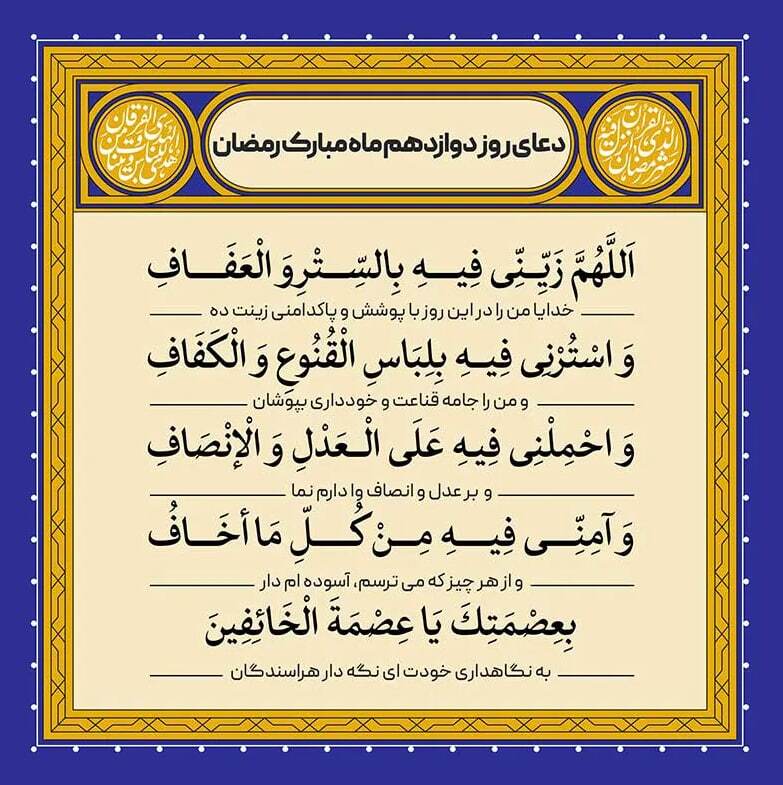 شهر رمضان الذی انزل فیه القرآن
دعای روز دوازدهم ماه مبارک رمضان
هدی للناس و بینات من الهدی و الفرقان
اَللَّهُمَّ زَیِّنِّی فِیهِ بِالسِّتْرِ وَ الْعَفَافِ
خدایا من را در این روز با پوشش و پاکدامنی زینت ده
وَ اسْتُرْنِی فِیهِ بِلِبَاسِ الْقُنُوعِ وَ الْکَفَافِ
و من را جامه قناعت و خودداری بپوشان
وَ احْمِلْنِی فِیهِ عَلَی الْعَدْلِ وَ الْإنْصَافِ
و بر عدل و انصاف وا دارم نما
وَ آمِنِّی فِیهِ مِنْ کُلِّ مَا أخَافُ
و از هر چیز که می ترسم، آسوده ام دار
بِعِصْمَتِكَ یَا عِصْمَةَ الْخَائِفِینَ
به نگاهداری خودت ای نگه دار هراسندگان